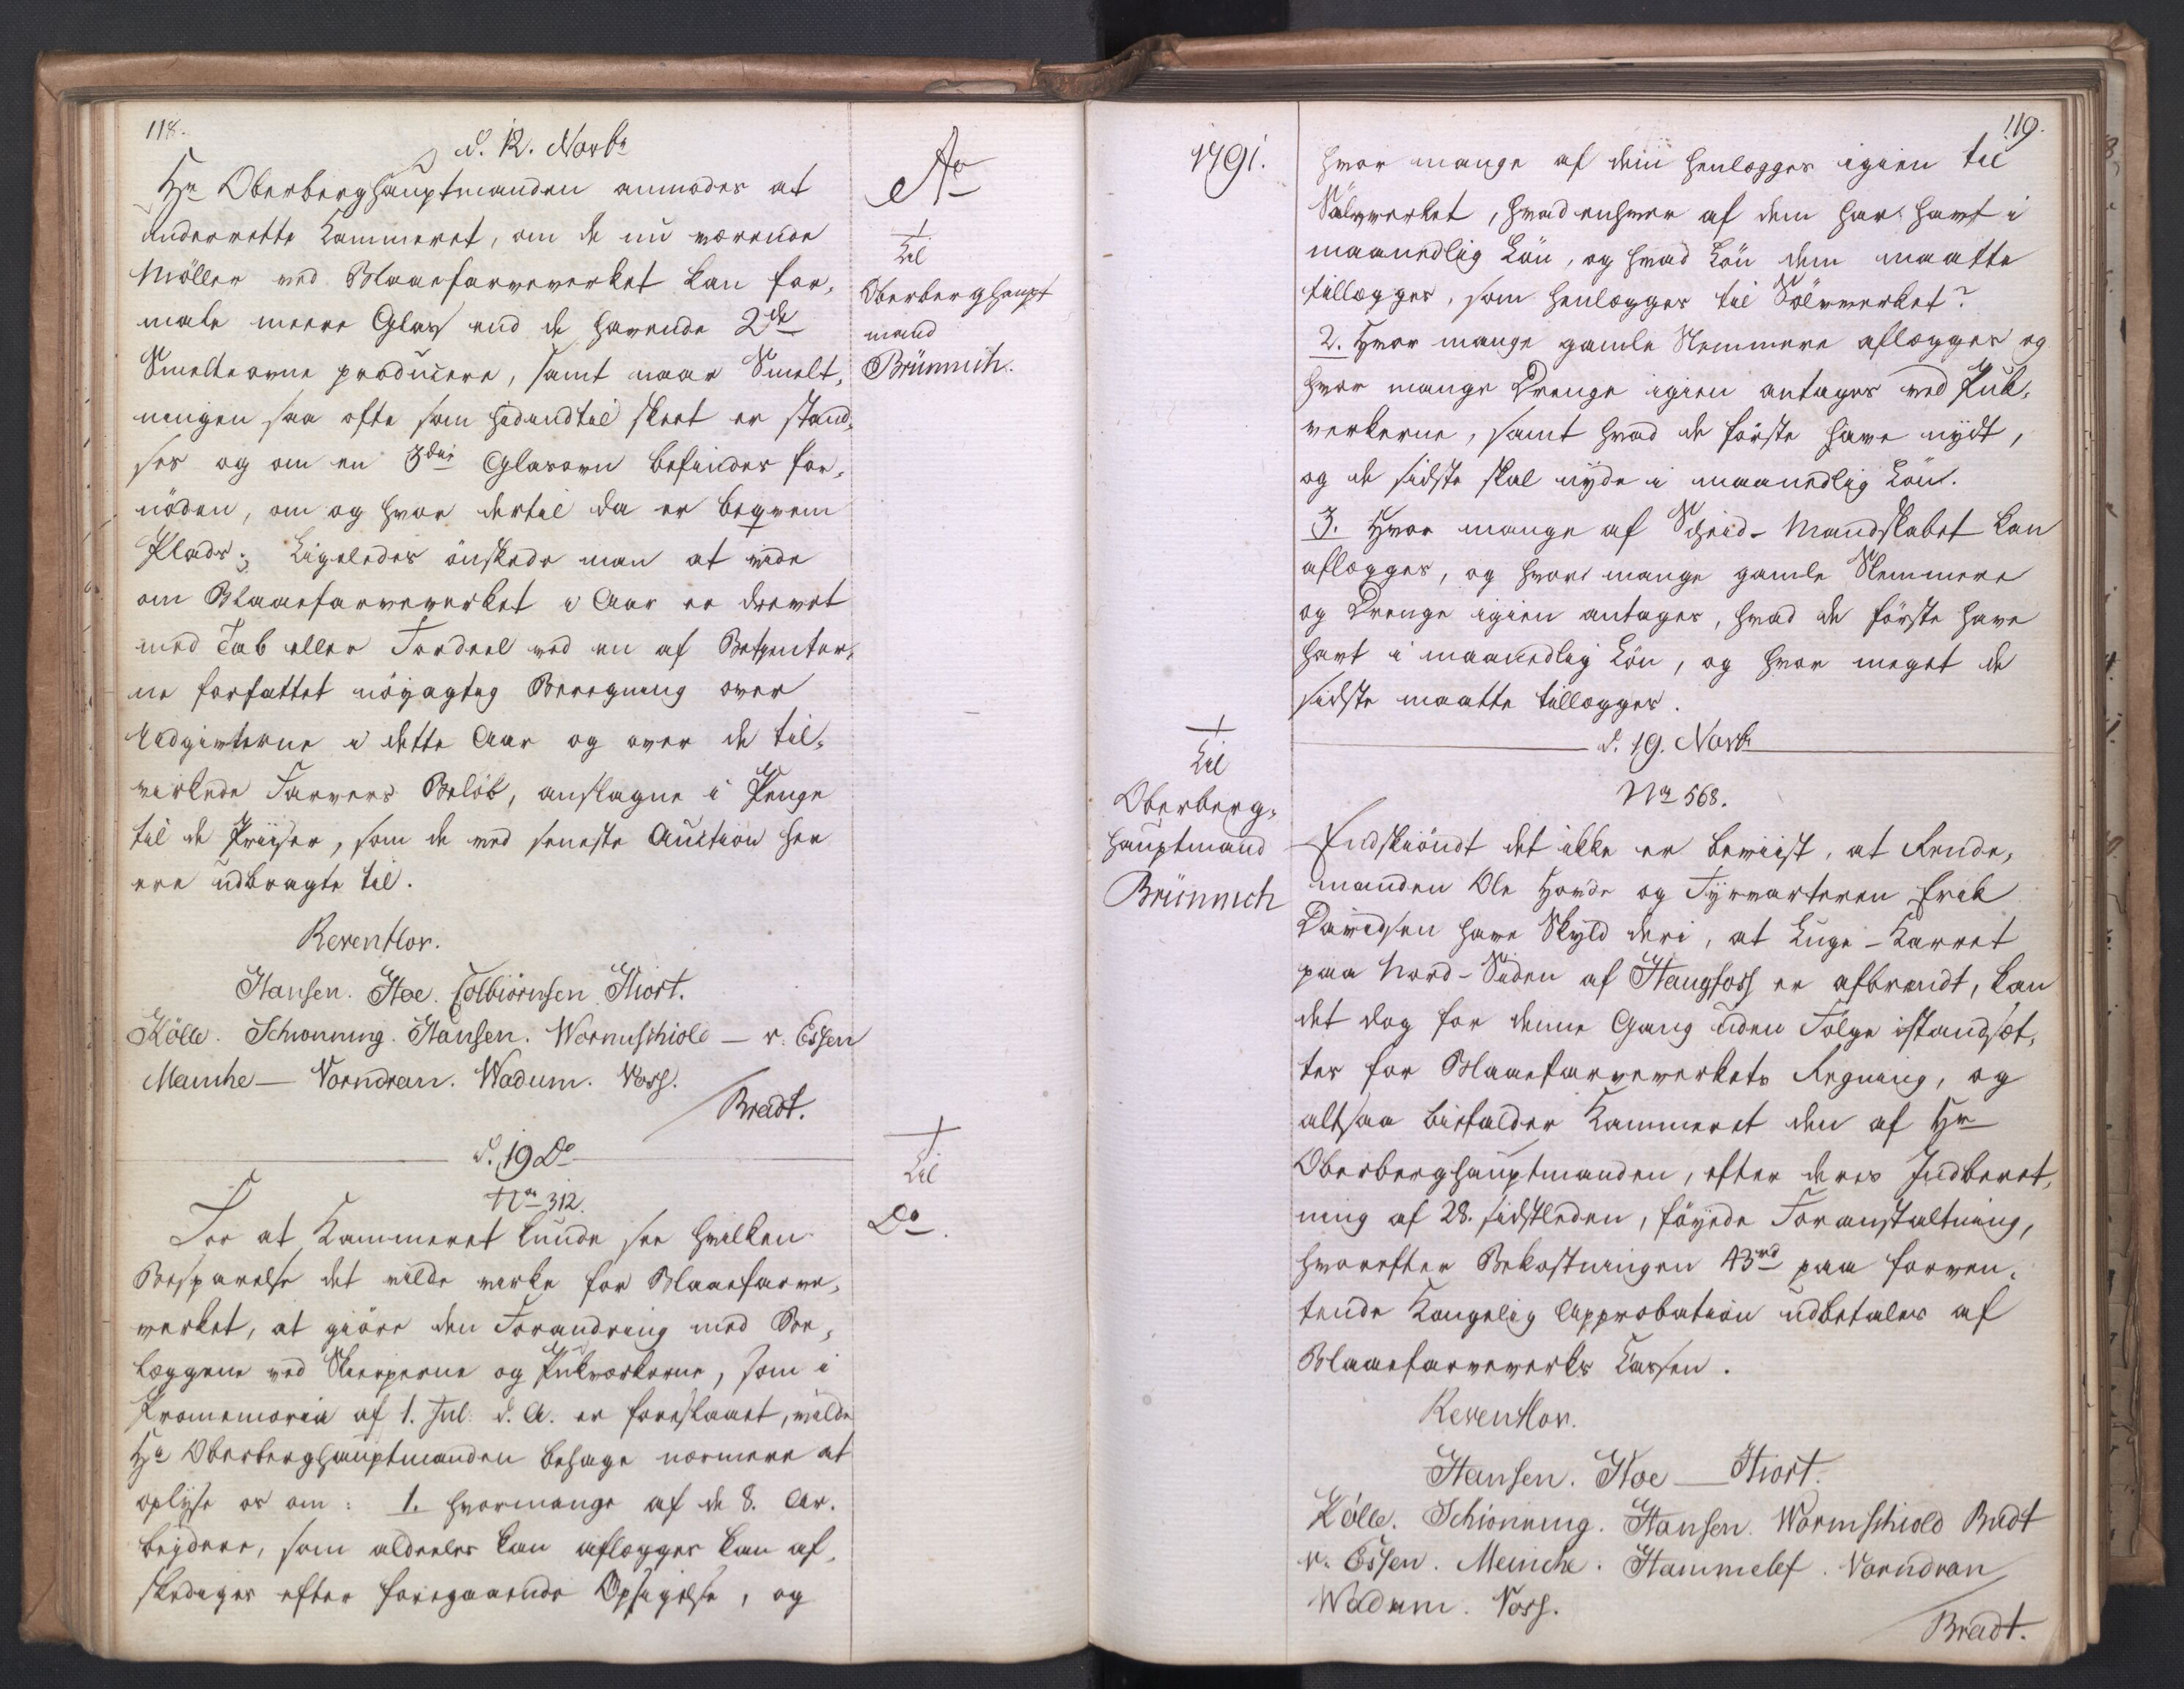 118.
d. 12. Novbr
Ao
Hr Oberberghauptmanden anmodes at
underrette Kammeret, om de nu værende
Möller ved Blaaefarveverket kan for-
male meere Glas end de havende 2de
Smelteovne producere, samt naar Smelt-
ningen saa ofte som hidindtil skeet er stand-
ses og om en 3die Glasovn befindes for-
nöden, om og hvor dertil da er beqvem
Plads; Ligeledes önskede man at vide
om Blaaefarveverket i Aar er drevet
med Tab eller Fordeel ved en af Betienter-
ne forfattet nöyagtig Beregning over
Udgivterne i dette Aar og over de til-
virkede Farvers Belöb, anslagne i Penge
til de Priiser, som de ved seneste Auction her
ere udbragte til.
Til
Oberberghaupt
mand
Brünnich.
Reventlov.
Hansen. Hoe. Colbiörnsen Hiort.
Kölle. Schionning. Hansen. Wormschiold — v. Essen
Meinche — Vorndran. Wadum. Voss.
Bradt.
d. 19 Do
No 312.
Til
Do.
For at Kammeret kunde see hvilken
Besparelse det vilde virke for Blaaefarve-
verket, at giöre den Forandring med Be-
læggene ved Skierperne og Pukværkerne, som i
Promemoria af 1. Jul. d. A. er foreslaaet, vilde
Hr Oberberghauptmanden behage nærmere at
oplyse os om: 1. hvormange af de 8. Ar-
beydere, som aldeeles kan aflægges kan af-
skediges efter foregaaende Opsigelse, og
119.
1791.
hvor mange af dem henlægges igien til
Sölvverket, hvad enhver af dem har havt i
maanedlig Lön, og hvad Lön dem maatte
tillægges, som henlægges til Sölvverket?
2. Hvor mange gamle Stemmere aflægges og
hvor mange Drenge igien antages ved Puk-
verkerne, samt hvad de förste have nydt,
og de sidste skal nyde i maanedlig Lön.
3. Hvor mange af Scheid-Mandskabet kan
aflægges, og hvor mange gamle Stemmere
og Drenge igien antages, hvad de förste have
havt i maanedlig Lön, og hvor meget de
sidste maatte tillægges.
d. 19. Novbr
No 568.
Til
Oberberg-
hauptmand
Brünnich
Endskiöndt det ikke er beviist, at Rende-
manden Ole Hovde og Fyrvarteren Erik
Davidsen have Skyld deri, at Luge-Karret
paa Nord-Siden af Haugfoss er afbrendt, kan
det dog for denne Gang uden Fölge istandsæt-
tes for Blaaefarveverkets Regning, og
altsaa bifalder Kammeret den af Hr
Oberberghauptmanden, efter deres Indberet-
ning af 28. sidstleden, föyede Foranstaltning,
hvorefter Bekostningen 43rd paa forven-
tende Kongelig Approbation udbetales af
Blaaefarveverks Cassen.
Reventlov.
Hansen. Hoe — Hiort.
Kölle. Schionning. Hansen. Wormschiold Bradt
v. Essen. Meinche. Hammelef. Vorndran
Wadum. Voss.
Bradt.